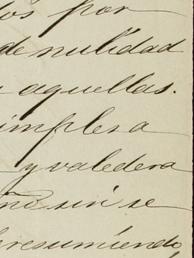 dos por
de nulidad
aquellas.
simples a
y valedera
ño sin se
presumiendo